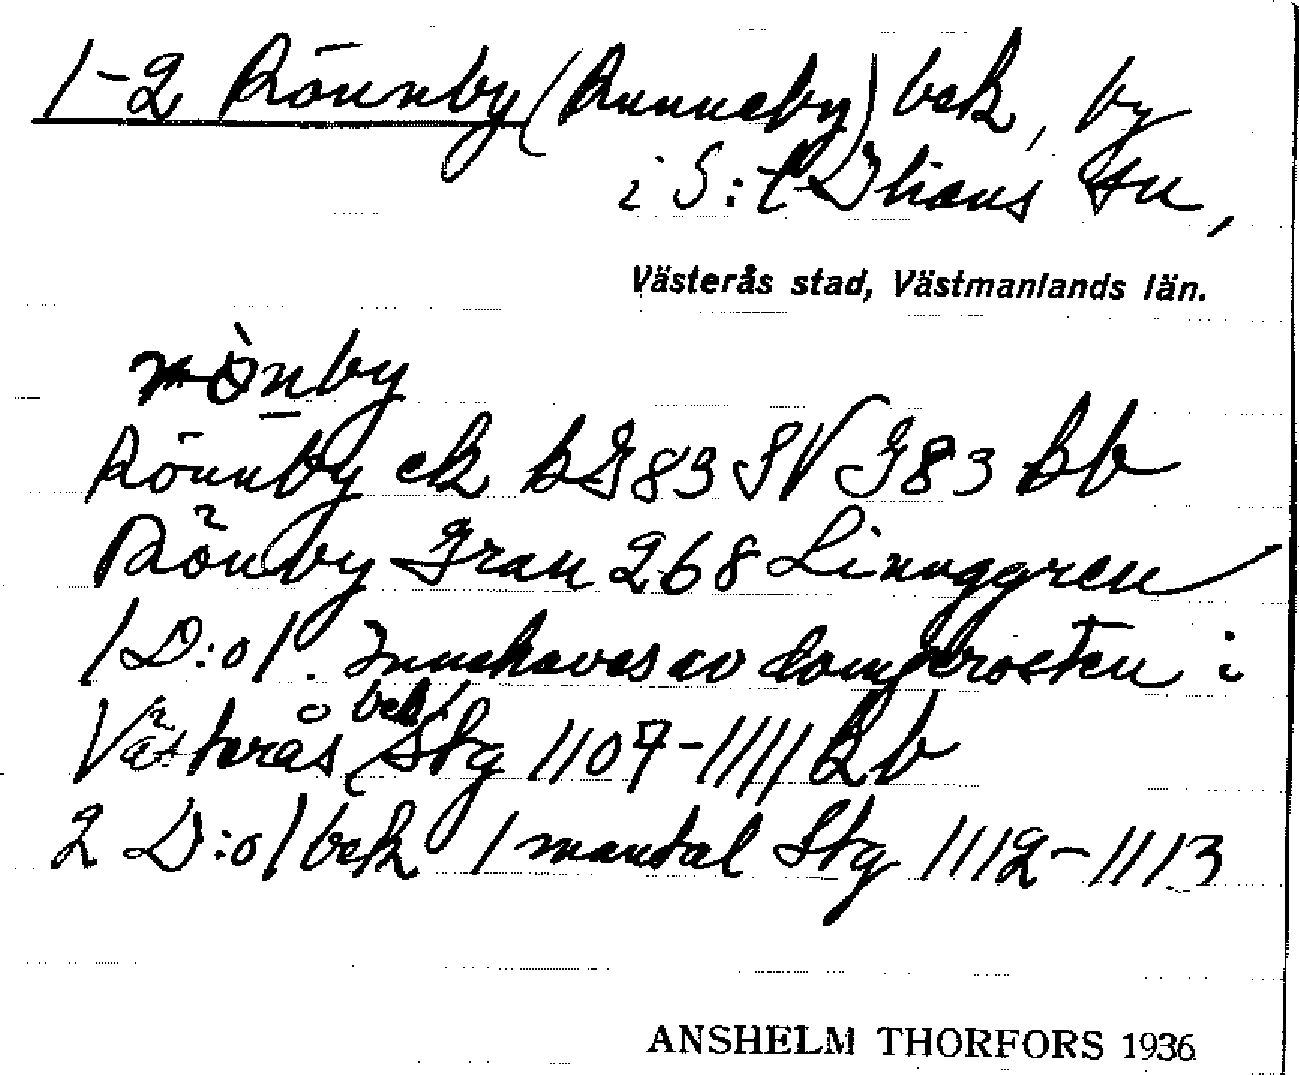 1-2 Rönnby (Runneby) bek, by
i S:t Ilians sn,
Västerås stad, Västmanlands län.
rònby
Rönnby ek bJ83 SV J83 Bb
Rönby Gran 268 Linnggren
1 D:o 1. Innehavas av domprosten i
Västerås bebl. Stg 1107-1111 Bb
2 D:o 1 bek 1 mantal Stg 1112-1113
ANSHELM THORFORS 1936